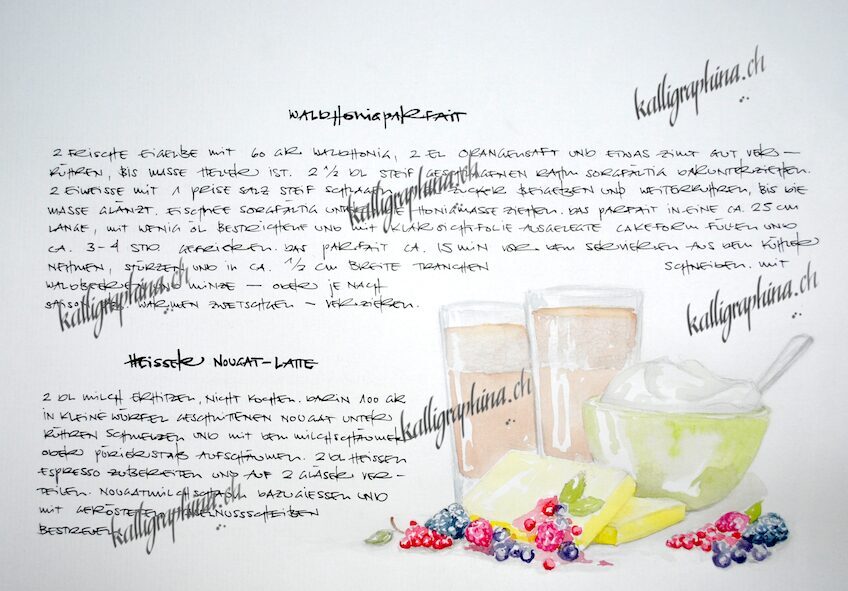 WALDHONIGPARFAIT
kalligraphina.ch
2 FRISCHE EIGELBE MIT 60 GR WALDHONIG, 2 EL ORANGENSAFT UND ETWAS ZIMT GUT VER-
RÜHREN, BIS MASSE HELLER IST. 2 1/2 DL STEIF GESCHLAGENEN RAHM SORGFÄLTIG DARUNTERZIEHEN.
2 EIWEISSE MIT 1 PRISE SALZ STEIF SCHLAGEN ZUCKER BEIGEBEN UND WEITERRÜHREN, BIS DIE
kalligraphina.ch
MASSE GLÄNZT. EISCHNEE SORGFÄLTIG UNTER DIE HONIGMASSE ZIEHEN. DAS PARFAIT IN EINE CA. 25 CM
LANGE, MIT WENIG ÖL BESTRICHENE UND MIT KLARSICHTFOLIE AUSGELEGTE CAKEFORM FÜLLEN UND
CA. 3-4 STD. GEFRIEREN. DAS PARFAIT CA. 15 MIN VOR DEM SERVIEREN AUS DEM KÜHLER
NEHMEN, STÜRZEN UND IN CA. 1/2 CM BREITE TRANCHEN SCHNEIDEN. MIT
WALDBEEREN UND MINZE - ODER JE NACH
kalligraphina.ch
kalligraphina.ch
SAISON WARMEN ZWETSCHGEN - VERZIEREN.
HEISSER NOUGAT-LATTE
2 DL MILCH ERHITZEN, NICHT KOCHEN. DARIN 100 GR
IN KLEINE WÜRFEL GESCHNITTENEN NOUGAT UNTER
kalligraphina.ch
RÜHREN SCHMELZEN UND MIT DEM MILCHSCHÄUMER
ODER PÜRIERSTAB AUFSCHÄUMEN. 2 DL HEISSEN
ESPRESSO ZUBEREITEN UND AUF 2 GLÄSER VER-
TEILEN. NOUGATMILCHSCHAUM DAZUGIESSEN UND
MIT GERÖSTETEN HASELNUSSSCHEIBEN
kalligraphina.ch
BESTREUEN.